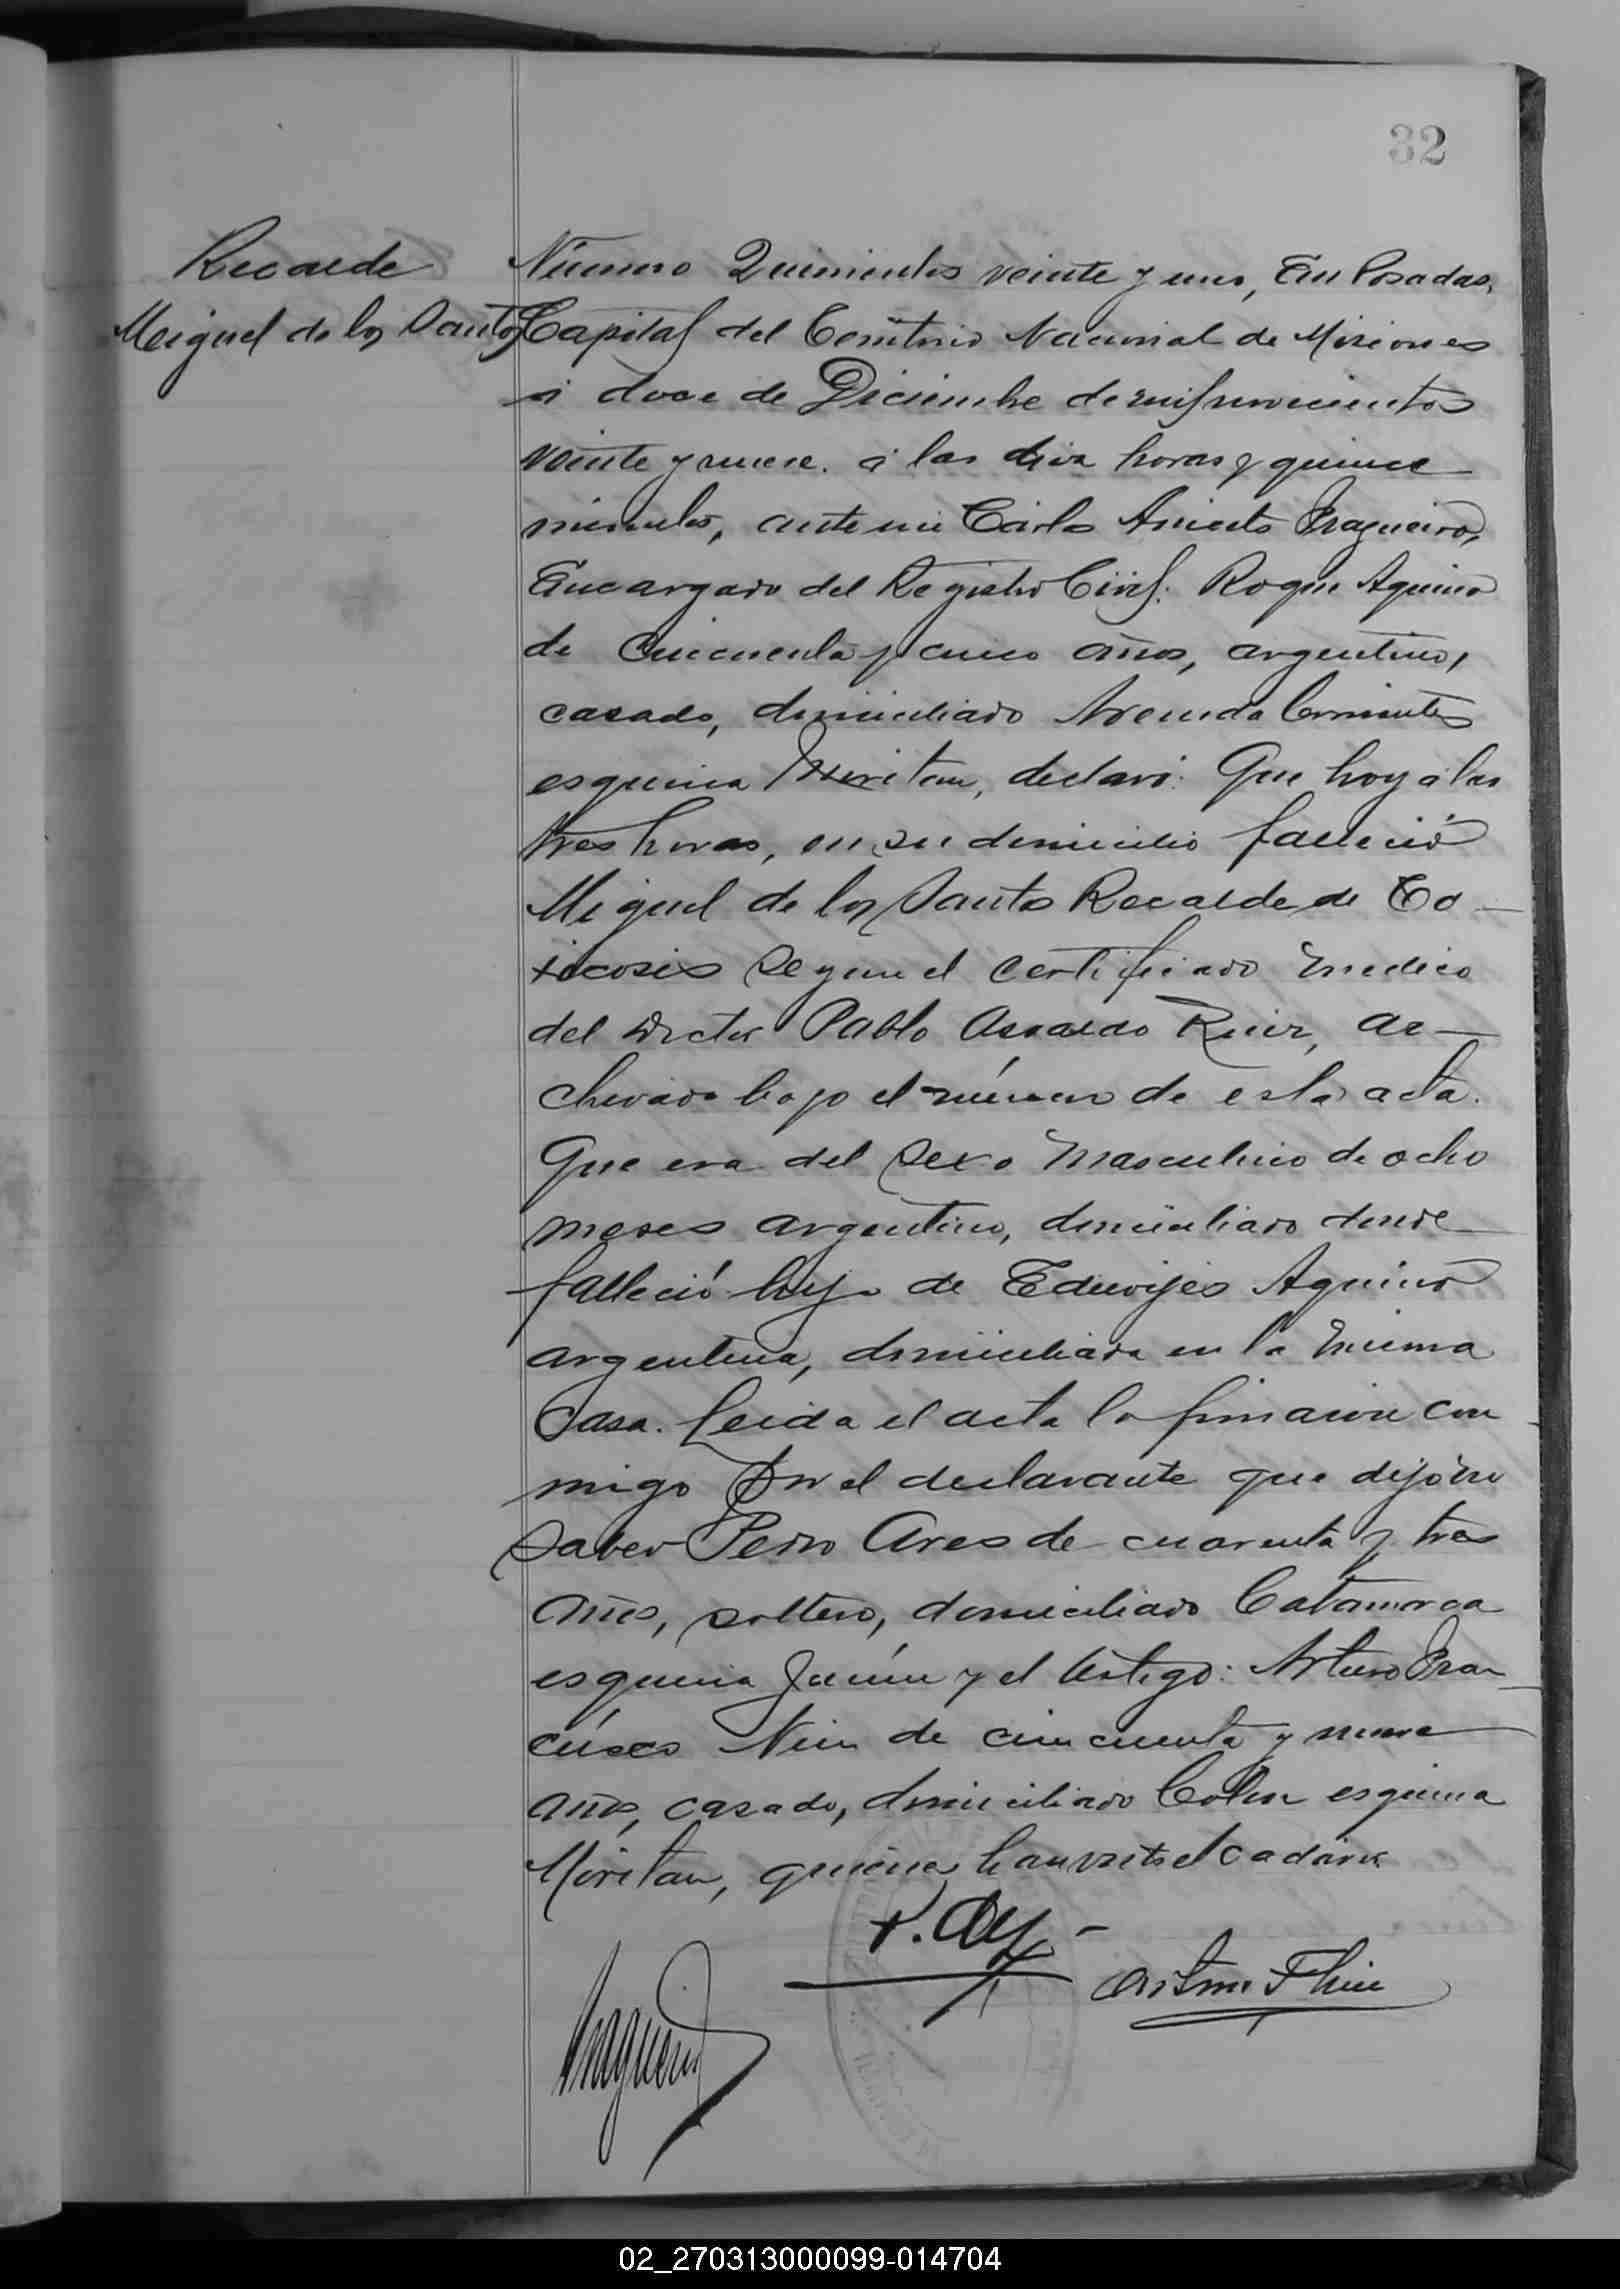 32
Recalde
Miguel de los Santos
Número Quinientos veinte y uno, En Posadas,
Capital del Territorio Nacional de Misiones
á doce de Diciembre de mil novecientos
veinte y nueve. á las diez horas y quince
minutos, ante mi Carlos Aniceto Fragueiro,
Encargado del Registro Civil: Roque Aquino
de cincuenta y cinco años, argentino,
casado, domiciliado Avenida Corrientes
esquina Moritan, declaró: Que hoy á las
tres horas, en su domicilio falleció
Miguel de los Santos Recalde de To-
xicosis segun el certificado medico
del doctor Pablo Osvaldo Ruiz, ar-
chivado bajo el número de esta acta.
Que era del sexo masculino de ocho
meses argentino, domiciliado donde
falleció hijo de Eduvijes Aquino
argentina, domiciliada en la misma
casa. Leida el acta la firmaron con
migo por el declarante que dijo no
saber Pedro Ares de cuarenta y tres
años, soltero, domiciliado Catamarca
esquina Junin y el testigo: Arturo Fran-
cisco de cincuenta y nueve
años, casado, domiciliado Colon esquina
Moritan, quienes han visto el cadáver
Fragueiro
02_270313000099-014704